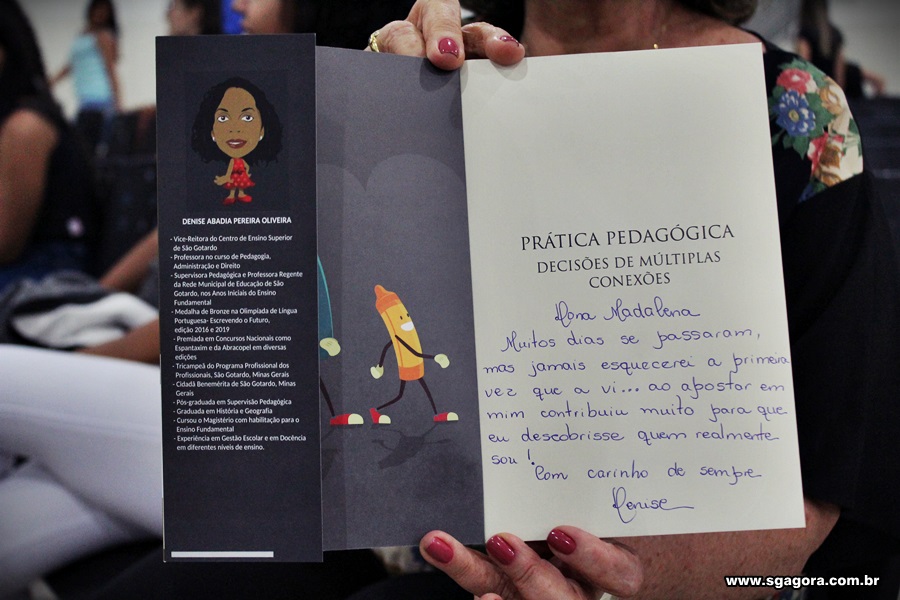 DENISE ABADIA PEREIRA OLIVEIRA
- Vice-Reitora do Centro de Ensino Superior
de São Gotardo
- Professora no curso de Pedagogia,
Administração e Direito
- Supervisora Pedagógica e Professora Regente
da Rede Municipal de Educação de São
Gotardo, nos Anos Iniciais do Ensino
Fundamental
- Medalha de Bronze na Olimpíada de Língua
Portuguesa- Escrevendo o Futuro,
edição 2016 e 2019
- Premiada em Concursos Nacionais como
Espantaxim e da Abracopel em diversas
edições
- Tricampeã do Programa Profissional dos
Profissionais, São Gotardo, Minas Gerais
- Cidadã Benemérita de São Gotardo, Minas
Gerais
- Pós-graduada em Supervisão Pedagógica
- Graduada em História e Geografia
- Cursou o Magistério com habilitação para o
Ensino Fundamental
- Experiência em Gestão Escolar e em Docência
em diferentes níveis de ensino.
PRÁTICA PEDAGÓGICA
DECISÕES DE MÚLTIPLAS
CONEXÕES
Dona Madalena
Muitos dias se passaram,
mas jamais esquecerei a primeira
vez que a vi... ao apostar em
mim contribuiu muito para que
eu descobrisse quem realmente
sou!
Com carinho de sempre
Denise
www.sgagora.com.br